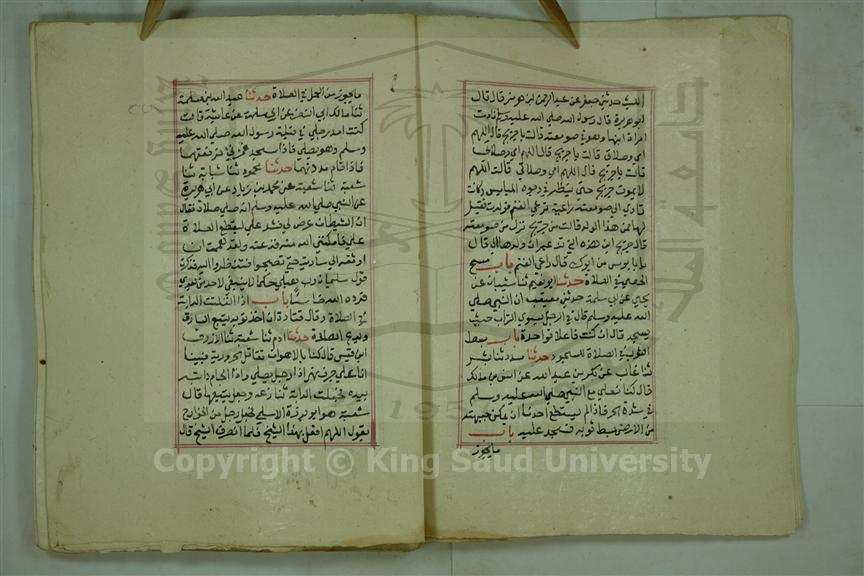 الليث حدثني جعفر عن عبد الرحمن بن هرمز قال قال
ابو هريرة قال رسول الله صلي الله عليه وسلم نادت
امراة ابنها وهو في صومعته قالت يا جريج قال اللهم
امي وصلاتي قالت يا جريج قال اللهم امي وصلاتي
قالت يا جريج قال اللهم امي وصلاتي قالت اللهم
لا يموت جريج حتي ينظر في وجوه المياميس وكانت
تاوي الي صومعته راعية ترعي الغنم فولدت فقيل
لها ممن هذا الولد قالت من جريج نزل من صومعته
قال جريج اين هذه التي تزعم ان ولدها لي قال
يا بابوس من ابوك قال راعي الغنم باب مسح
الحصي في الصلاة حدثنا ابو نعيم ثنا شيبان عن
يحيي عن ابي سلمة حدثني معيقيب ان النبي صلي
الله عليه وسلم قال في الرجل يسوي التراب حيث
يسجد قال ان كنت فاعلا فواحدة باب بسط
الثوب في الصلاة للسجود حدثنا مسدد ثنا بشر
ثنا غالب عن بكر بن عبد الله عن انس بن مالك
قال كنا نصلي مع النبي صلي الله عليه وسلم
في شدة الحر فاذا لم يستطع احدنا ان يمكن جبهته
من الارض بسط ثوبه فسجد عليه باب
ما يجوز
ما يجوز من العمل في الصلاة حدثنا عبد الله بن مسلمة
ثنا مالك ابي النضر عن ابي سلمة عن عايشة قالت
كنت امد رجلي في قبلة رسول الله صلي الله عليه
وسلم وهو يصلي فاذا سجد غمزني فرفعتها
فاذا قام مددتها حدثنا محمود ثنا شبابة ثنا
شعبة عن محمد بن زياد عن ابي هريرة
عن النبي صلي الله عليه وسلم انه صلي صلاة فقال
ان الشيطان عرض لي فشد علي ليقطع الصلاة
علي فامكنني الله منه فذعته ولقد هممت ان
اوثقه الي سارية حتي تصبحوا فتنظروا اليه فذكرت
قول سليمان رب هب لي ملكا لا ينبغي لاحد من بعدي
فرده الله خاسيا باب اذا انفلتت الدابة
في الصلاة وقال قتادة ان اخذ ثوبه يتبع السارق
ويدع الصلاة حدثنا ادم ثنا شعبة ثنا الازرق
ابن قيس قال كنا بالاهواز نقاتل الحرورية فبينا
انا علي جرف نهر اذا رجل يصلي واذا لجام دابته
بيده فجعلت الدابة تنازعه وجعل يتبعها قال
شعبة هو ابو برزة الاسلمي فجعل رجل من الخوارج
يقول اللهم افعل بهذا الشيخ فلما انصرف الشيخ قال
Copyright © King Saud University